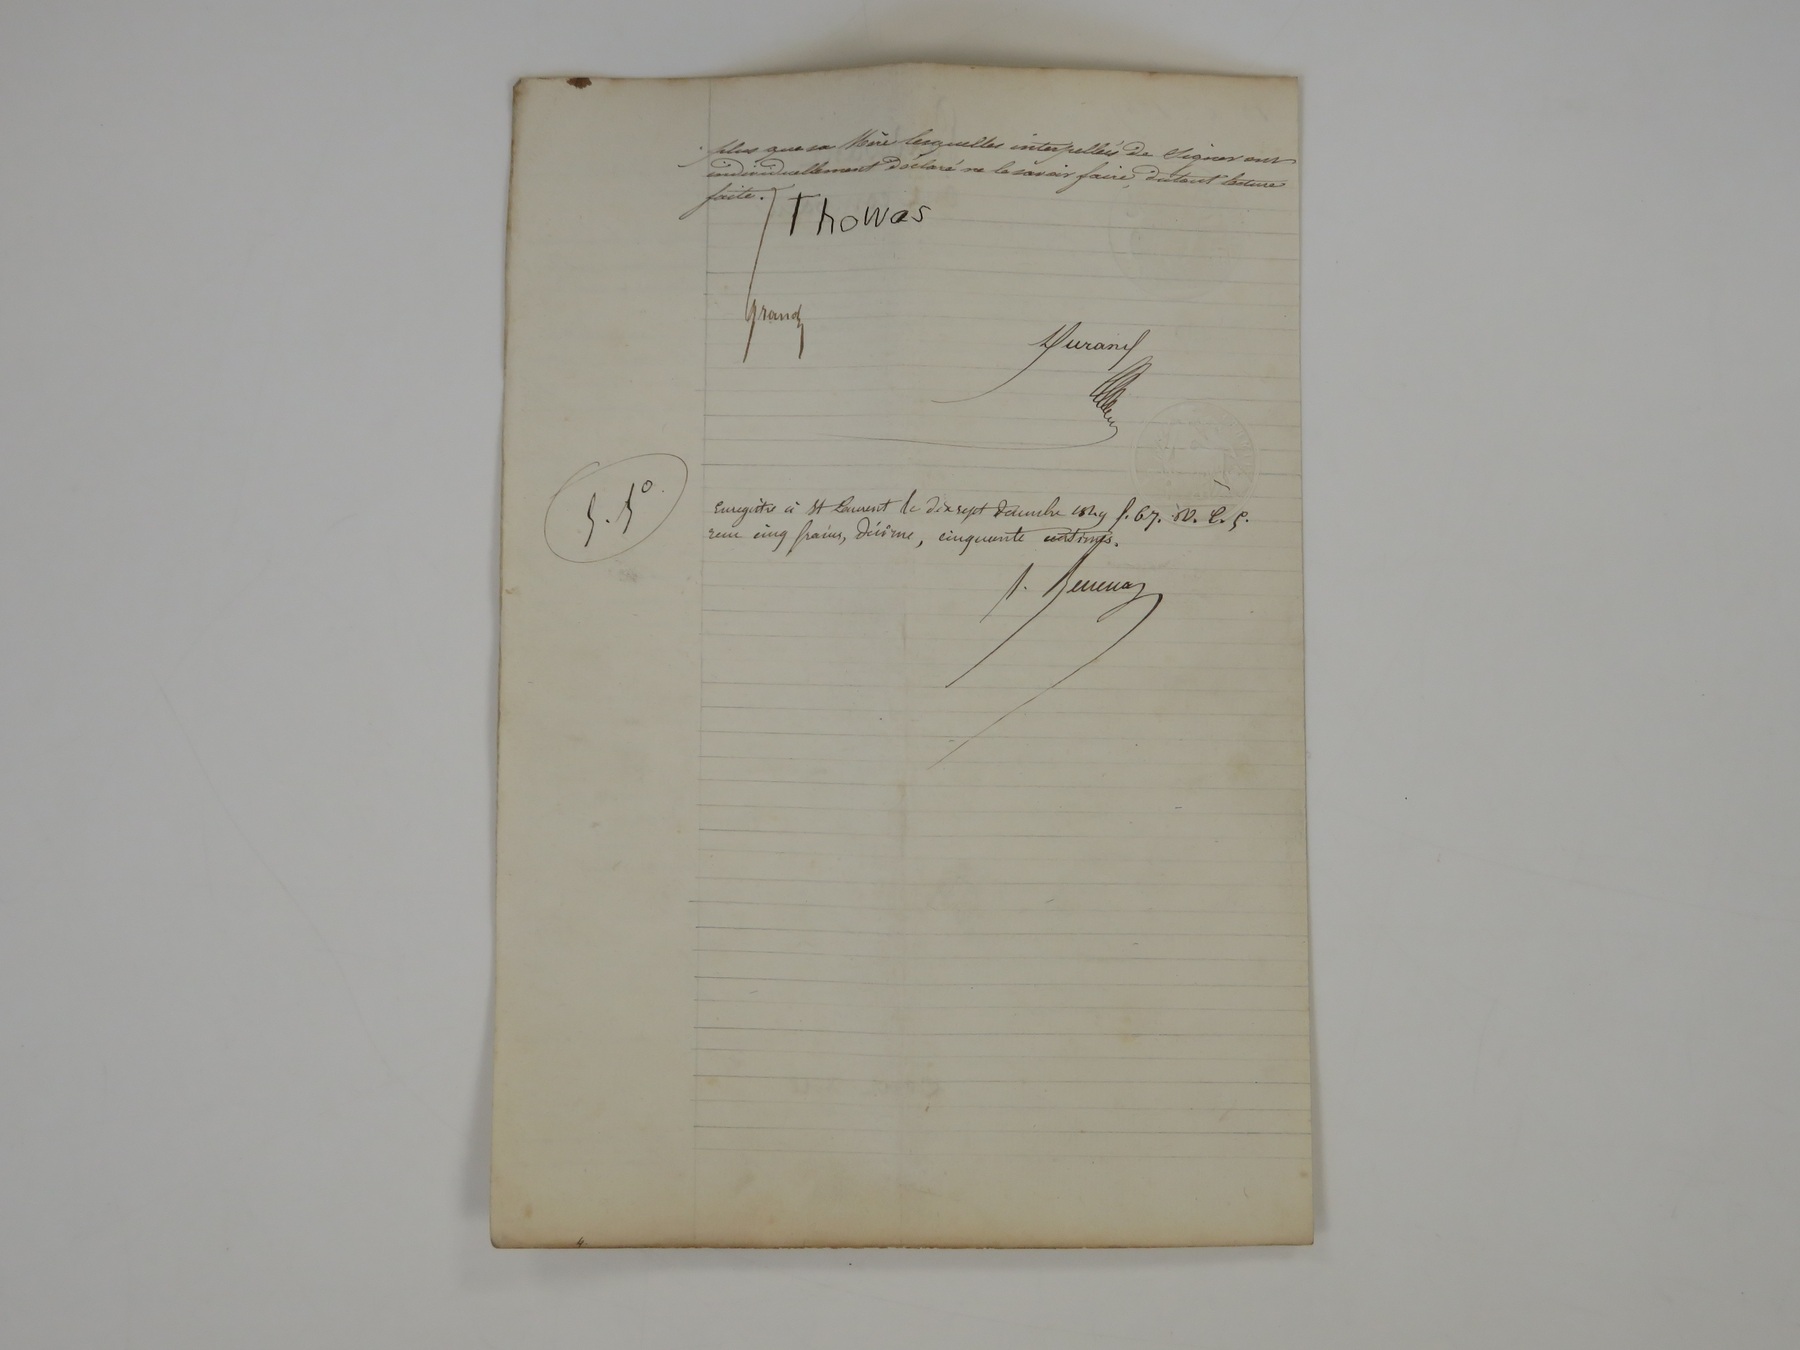 plus que sa Mère lesquelles interpellés de signer ont
individuellement déclaré ne le savoir faire, dutout lecture
faite.
Thowas
grand
Durand
5.5⁰
Enregistré à St Laurent le dix sept décembre 1849 f. 67. V. C. 5.
reçu cinq francs, décime, cinquante centimes.